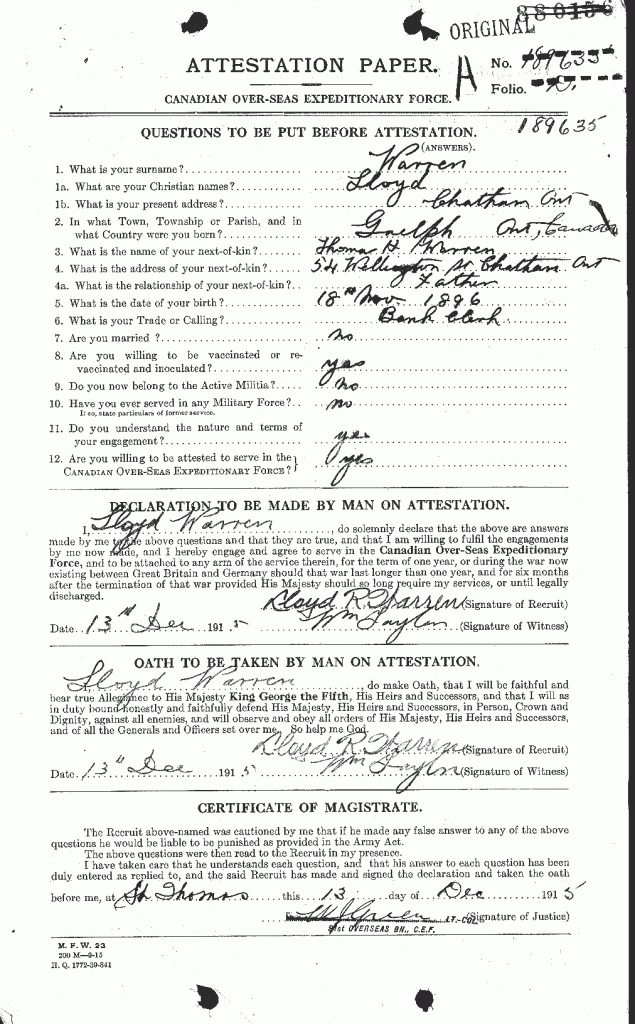 880156
ORIGINAL
ATTESTATION PAPER.
A
No. 189635
Folio.
CANADIAN OVER-SEAS EXPEDITIONARY FORCE.
189635
QUESTIONS TO BE PUT BEFORE ATTESTATION.
(ANSWERS).
1. What is your surname? Warren
1a. What are your Christian names? Lloyd
1b. What is your present address? Chatham Ont
2. In what Town, Township or Parish, and in
what Country were you born? Guelph Ont, Canada
3. What is the name of your next-of-kin? Thomas H Warren
4. What is the address of your next-of-kin? 54 Wellington St. Chatham Ont
4a. What is the relationship of your next-of-kin? Father
5. What is the date of your birth? 18th Nov. 1896
6. What is your Trade or Calling? Bank Clerk
7. Are you married ? no
8. Are you willing to be vaccinated or re-
vaccinated and inoculated? yes
9. Do you now belong to the Active Militia? no
10. Have you ever served in any Military Force? no
If so, state particulars of former service.
11. Do you understand the nature and terms of
your engagement? yes
12. Are you willing to be attested to serve in the
CANADIAN OVER-SEAS EXPEDITIONARY FORCE? yes
DECLARATION TO BE MADE BY MAN ON ATTESTATION.
I, Lloyd Warren, do solemnly declare that the above are answers
made by me to the above questions and that they are true, and that I am willing to fulfil the engagements
by me now made, and I hereby engage and agree to serve in the Canadian Over-Seas Expeditionary
Force, and to be attached to any arm of the service therein, for the term of one year, or during the war now
existing between Great Britain and Germany should that war last longer than one year, and for six months
after the termination of that war provided His Majesty should so long require my services, or until legally
discharged.
Lloyd R. Warren (Signature of Recruit)
Date 13th Dec 1915 Wm Taylor (Signature of Witness)
OATH TO BE TAKEN BY MAN ON ATTESTATION.
I, Lloyd Warren, do make Oath, that I will be faithful and
bear true Allegiance to His Majesty King George the Fifth, His Heirs and Successors, and that I will as
in duty bound honestly and faithfully defend His Majesty, His Heirs and Successors, in Person, Crown and
Dignity, against all enemies, and will observe and obey all orders of His Majesty, His Heirs and Successors,
and of all the Generals and Officers set over me. So help me God.
Lloyd R. Warren (Signature of Recruit)
Date 13th Dec 1915 Wm Taylor (Signature of Witness)
CERTIFICATE OF MAGISTRATE.
The Recruit above-named was cautioned by me that if he made any false answer to any of the above
questions he would be liable to be punished as provided in the Army Act.
The above questions were then read to the Recruit in my presence.
I have taken care that he understands each question, and that his answer to each question has been
duly entered as replied to, and the said Recruit has made and signed the declaration and taken the oath
before me, at St. Thomas this 13 day of Dec 1915
Green LT-COL (Signature of Justice)
91st OVERSEAS BN., C.E.F.
M. F. W. 23
200 M—9-15
H. Q. 1772-39-841